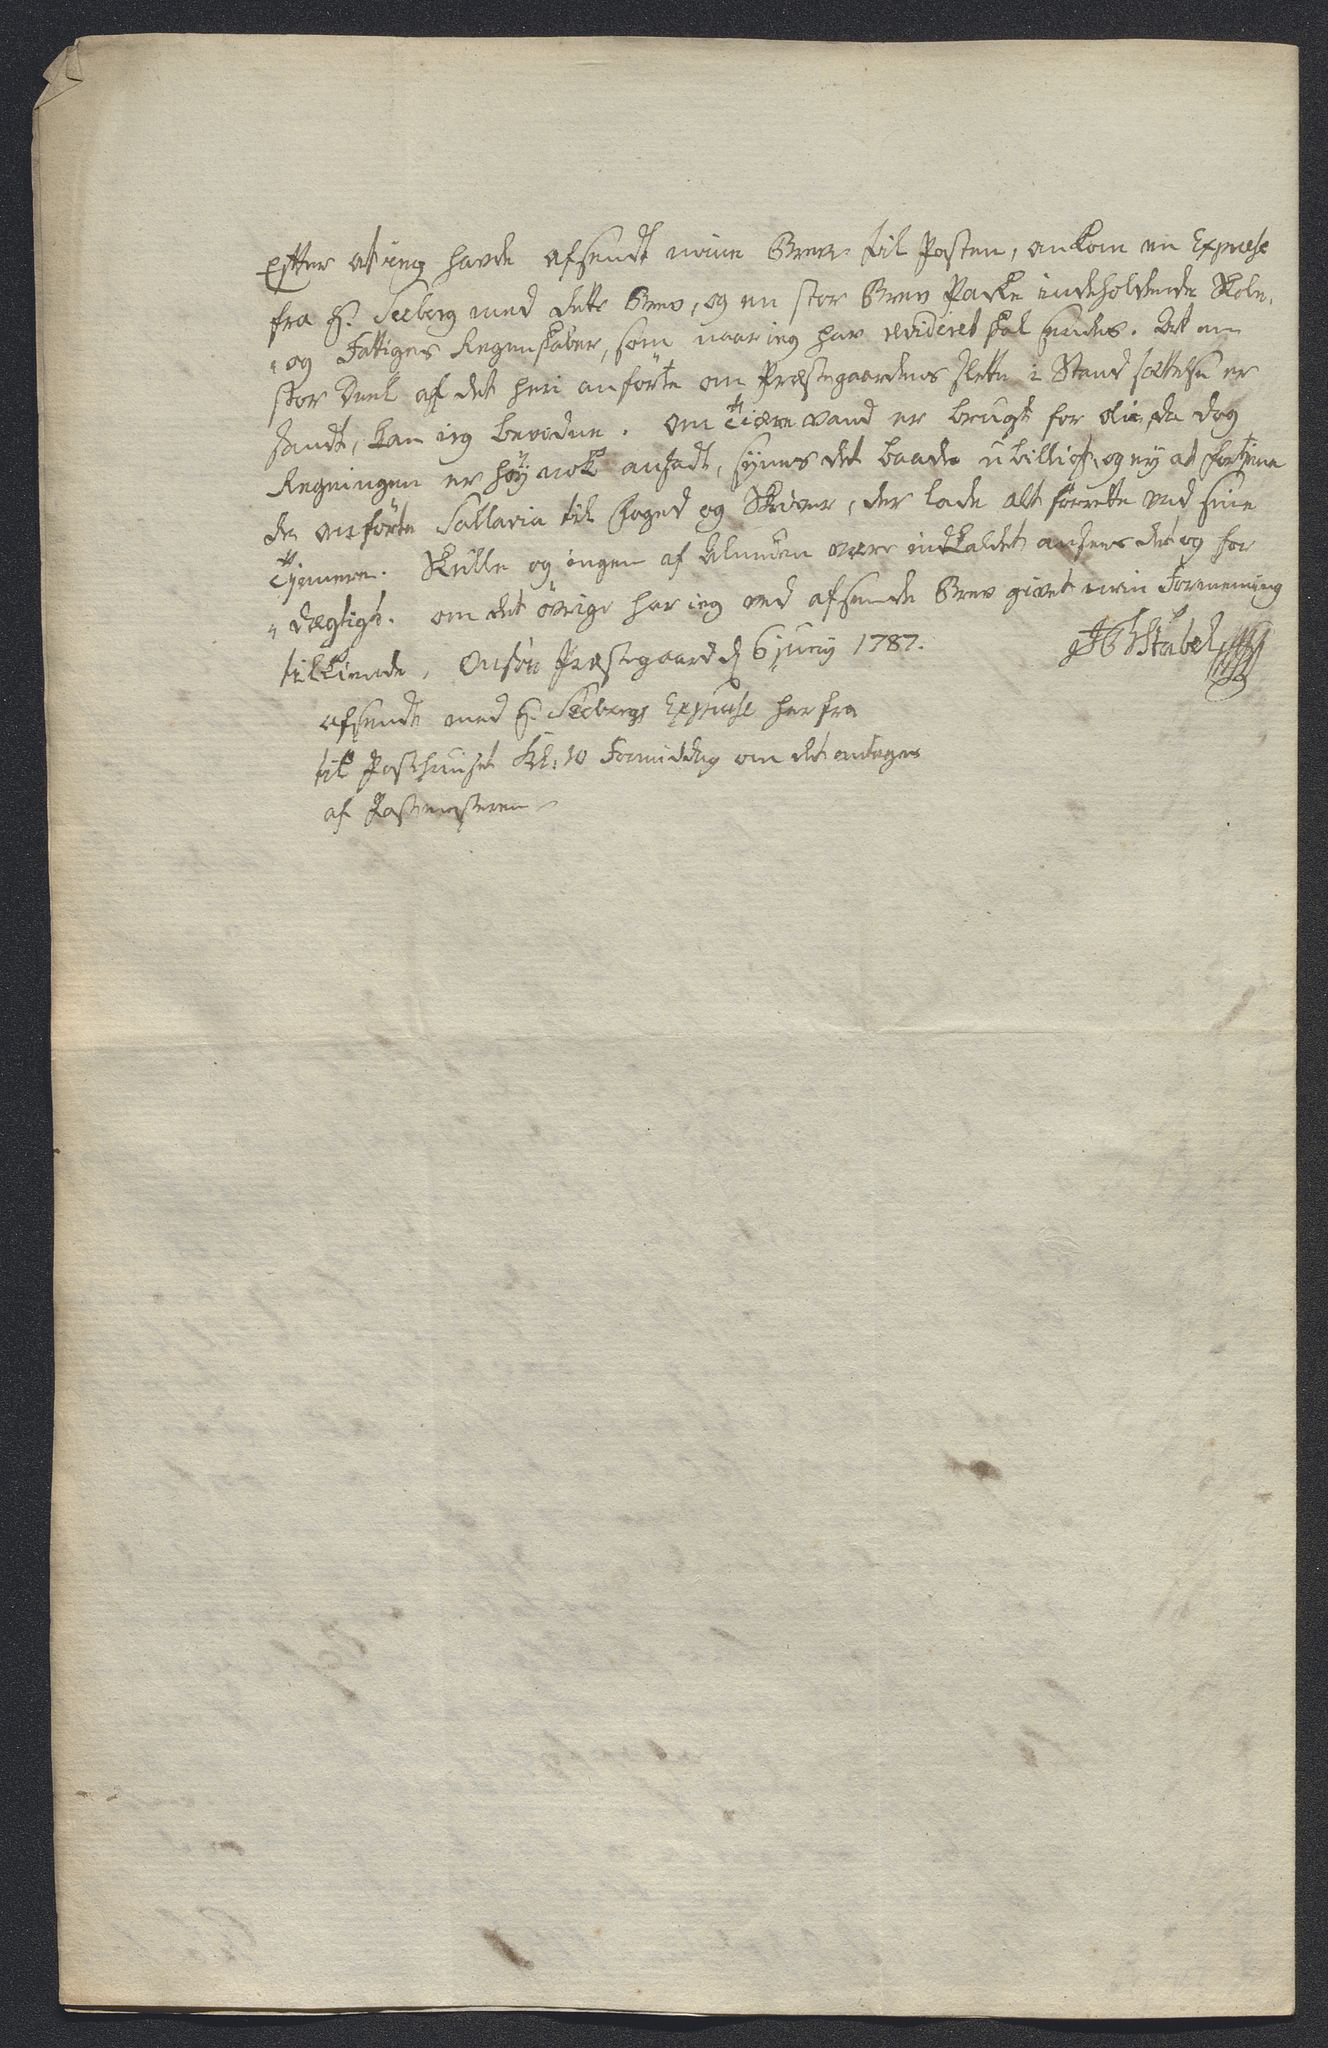 Efter at ieg havde afsendt mine Breve til Posten, ankom en Expresse
fra H. Seeberg med dette Brev, og en stor Brev Packe indeholdende Skole-
og Fattiges Regenskaber, som naar ieg har revideret skal sendes. At en
stor Deel af det heri anförte om Præstegaardens slette i Stand sættelse er
sandt, kan ieg bevidne. Om Tiære vand er brugt for olie, da dog
Regningen er höy nok ansadt, synes det baade ubilligt, og ey at fortjene
de anförte Sallaria til Foged og Skriver, der lade alt forrette ved sine
Tjennere. Skulle og ingen af Almuen være indkaldet ansees det og for
dægtigt. om det övrige har ieg ved afsendte Brev givet min Formening
tilkiende, Onsöe Præstegaard d 6 Junij 1787. Stabel
afsendt med H. Seebergs Expresse her fra
til Posthuuset Kl: 10 Formiddag om det antages
af Postmesteren